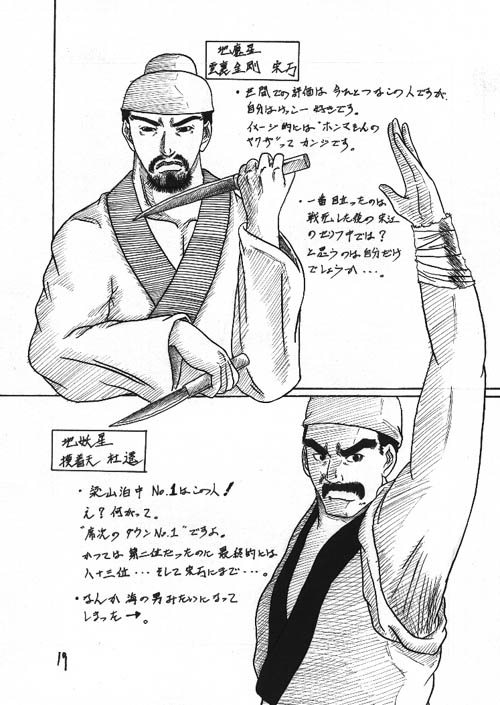 地魔星
雲裏金剛 宋万
・世間での評価は今ひとつなこの人ですが、
自分はけっこー好きです。
イメージ的には“ホンマもんの
ヤクザ”ってカンジです。
・一番目立ったのは
戦死した後の宋江
のセリフ中では?
と思うのは自分だけ
でしょうか・・・。
地妖星
摸着天 杜遷
・梁山泊中 No.1はこの人!
え?何がって。
“席次のダウンNo.1”ですよ。
かつては第二位だったのに最終的には
八十三位・・・そして宋万にまで・・・。
・なんか海の男みたいになって
しまった→。
19